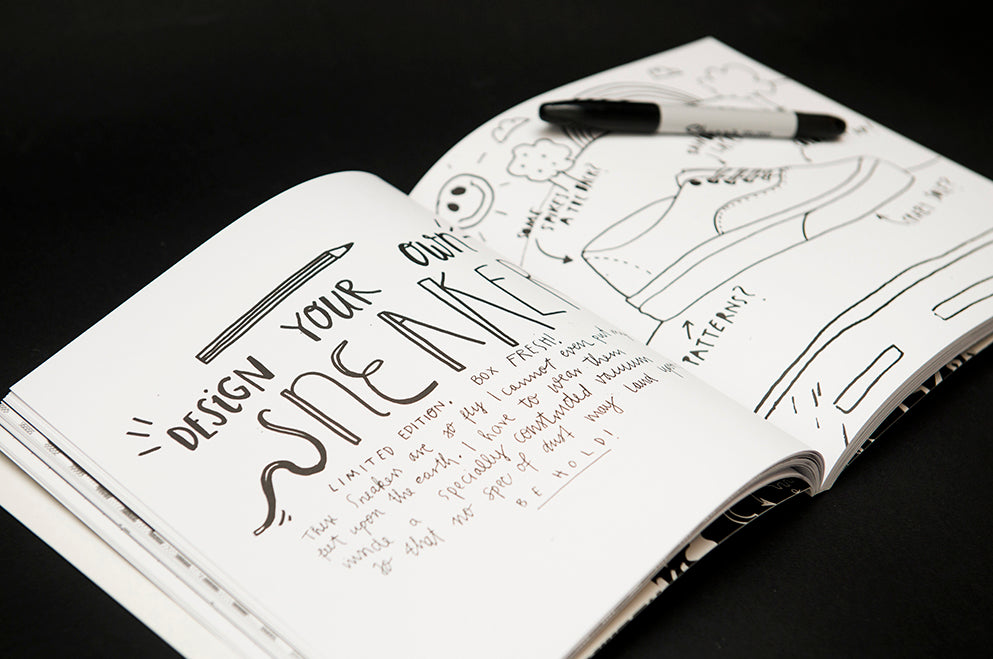 DESIGN YOUR own
SNEAKER
LIMITED EDITION. BOX FRESH!
These Sneakers are so fly I cannot even put my
feet upon the earth. I have to wear them
inside a specially constructed vacuum
so that no spec of dust may land upon
BEHOLD!
SOME
SPIKES/
AT THE BACK?
PATTERNS?